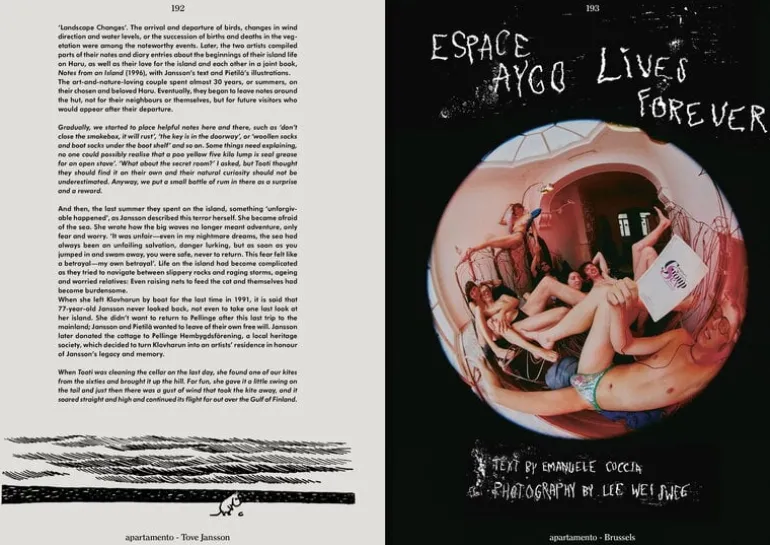 192
'Landscape Changes'. The arrival and departure of birds, changes in wind
direction and water levels, or the succession of births and deaths in the veg-
etation were among the noteworthy events. Later, the two artists compiled
parts of their notes and diary entries about the beginnings of their island life
on Haru, as well as their love for the island and each other in a joint book,
Notes from an Island (1996), with Jansson's text and Pietilä's illustrations.
The art-and-nature-loving couple spent almost 30 years, or summers, on
their chosen and beloved Haru. Eventually, they began to leave notes around
the hut, not for their neighbours or themselves, but for future visitors who
would appear after their departure.
Gradually, we started to place helpful notes here and there, such as 'don't
close the smokebox, it will rust', 'the key is in the doorway', or 'woollen socks
and boot socks under the boot shelf' and so on. Some things need explaining,
no one could possibly realise that a poo yellow five kilo lump is seal grease
for an open stove'. 'What about the secret room?' I asked, but Tooti thought
they should find it on their own and their natural curiosity should not be
underestimated. Anyway, we put a small bottle of rum in there as a surprise
and a reward.
And then, the last summer they spent on the island, something 'unforgiv-
able happened', as Jansson described this terror herself. She became afraid
of the sea. She wrote how the big waves no longer meant adventure, only
fear and worry. 'It was unfair—even in my nightmare dreams, the sea had
always been an unfailing salvation, danger lurking, but as soon as you
jumped in and swam away, you were safe, never to return. This fear felt like
a betrayal—my own betrayal'. Life on the island had become complicated
as they tried to navigate between slippery rocks and raging storms, ageing
and worried relatives: Even raising nets to feed the cat and themselves had
become burdensome.
When she left Klovharun by boat for the last time in 1991, it is said that
77-year-old Jansson never looked back, not even to take one last look at
her island. She didn't want to return to Pellinge after this last trip to the
mainland; Jansson and Pietilä wanted to leave of their own free will. Jansson
later donated the cottage to Pellinge Hembygdsförening, a local heritage
society, which decided to turn Klovharun into an artists' residence in honour
of Jansson's legacy and memory.
When Tooti was cleaning the cellar on the last day, she found one of our kites
from the sixties and brought it up the hill. For fun, she gave it a little swing on
the tail and just then there was a gust of wind that took the kite away, and it
soared straight and high and continued its flight far out over the Gulf of Finland.
apartamento - Tove Jansson
193
ESPACE
AYGO LIVES
FOREVER
TEXT BY EMANUELE COCCIA
PHOTOGRAPHY BY LEE WEI SWEE
apartamento - Brussels